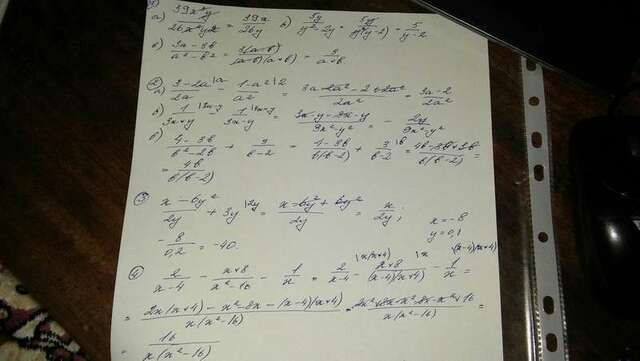 ①
а) 39x³y / 26x²y² = 39x / 26y б) 5y / y²-2y = 5y / y(y-2) = 5 / y-2
в) 3a-3b / a²-b² = 3(a-b) / (a-b)(a+b) = 3 / a+b
② а) 3-2a\a / 2a - 1-a²\2 / a² = 3a-2a²-2+2a² / 2a² = 3a-2 / 2a²
б) 1\3x-y / 3x+y - 1\3x+y / 3x-y = 3x-y-3x-y / 9x²-y² = - 2y / 9x²-y²
в) 4-3b / b²-2b + 3 / b-2 = 4-3b / b(b-2) + 3\b / b-2 = 4b-3b+3b / b(b-2) =
= 4b / b(b-2)
③ x-6y² / 2y + 3y\2y = x-6y²+6y² / 2y = x / 2y; x=-8
y=0,1
- 8 / 0,2 = -40.
④ 2 / x-4 - x+8 / x²-16 - 1 / x = 2\x(x+4) / x-4 - x+8\x / (x-4)(x+4) - 1\(x-4)(x+4) / x =
= 2x(x+4)-x²-8x-(x-4)(x+4) / x(x²-16) = 2x²+8x-x²-8x-x²+16 / x(x²-16) =
= 16 / x(x²-16)